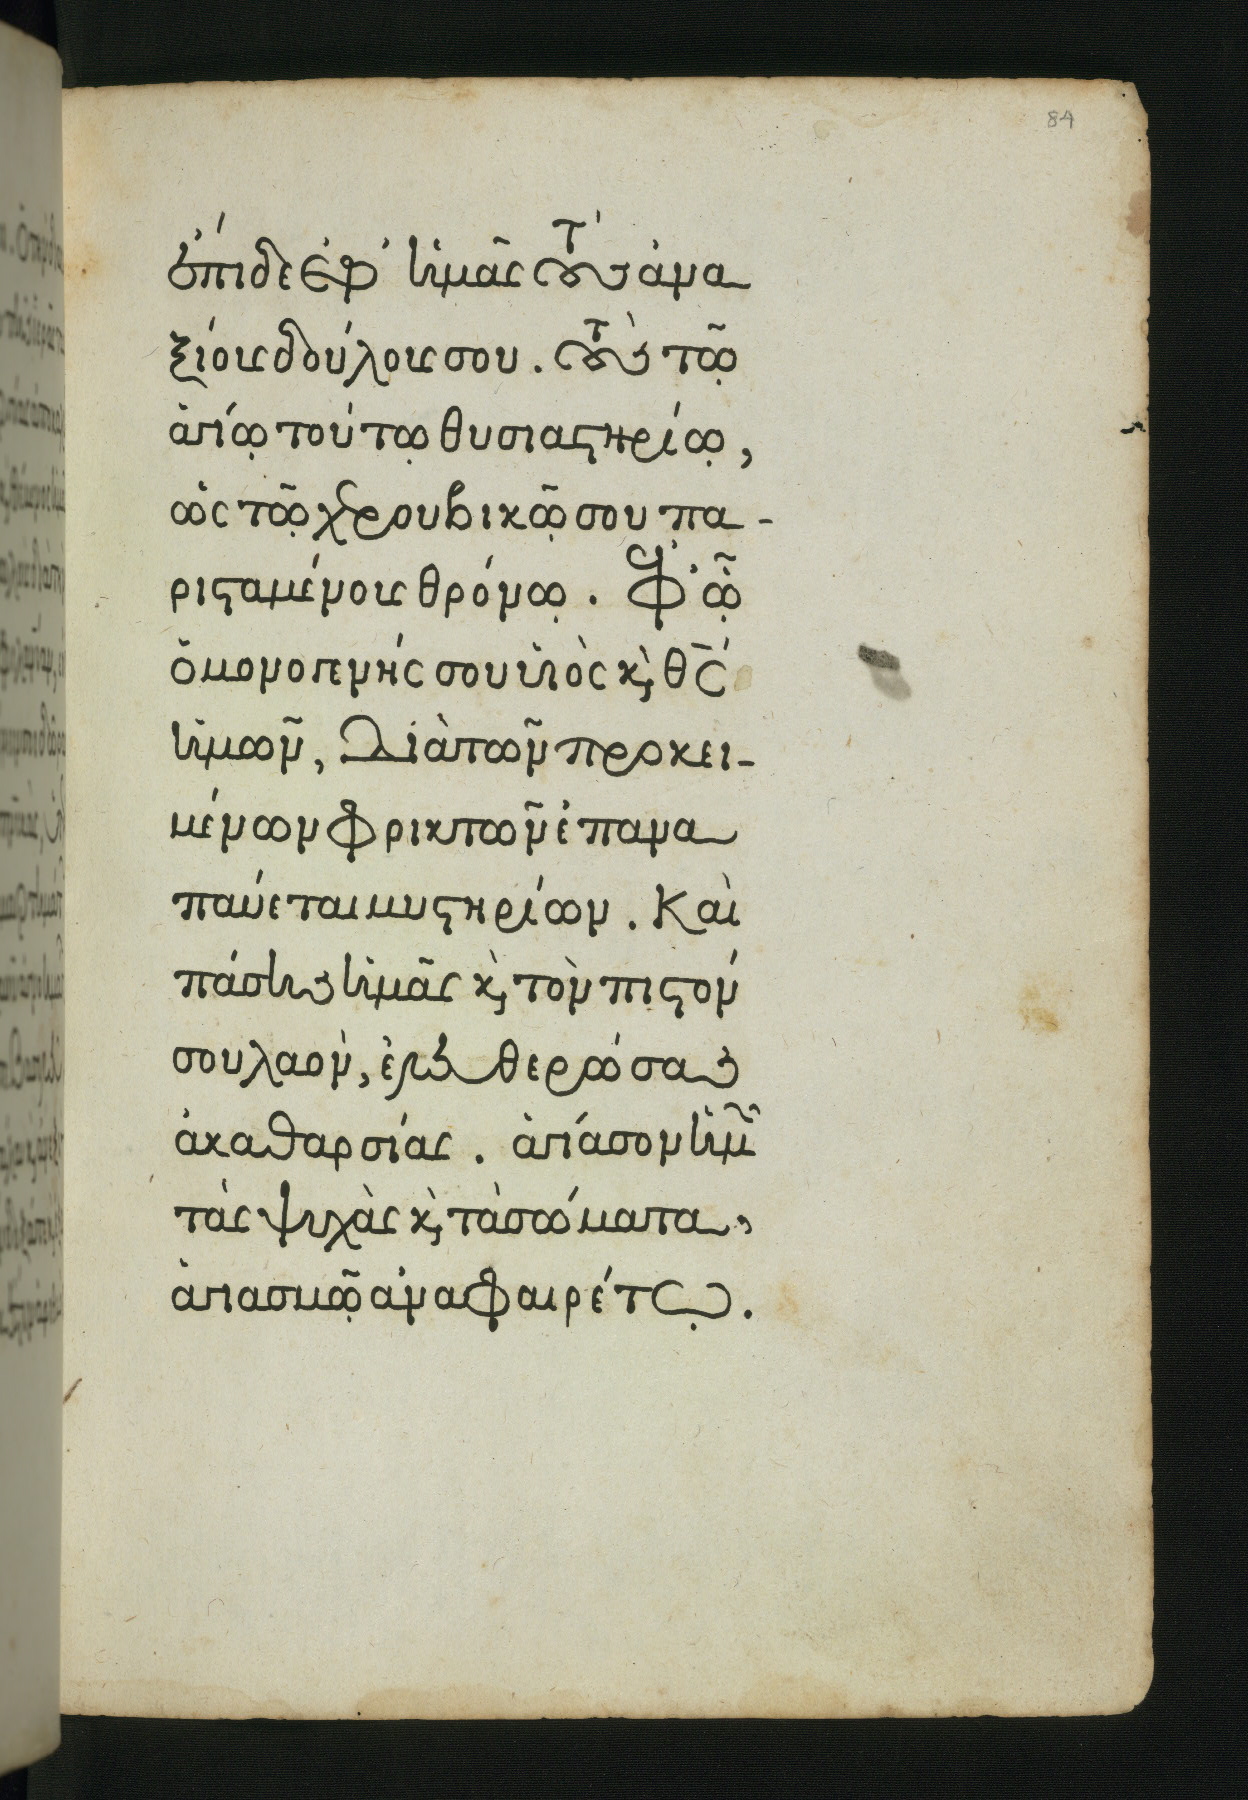 ἔπιδε ἐφ' ἡμᾶς τοὺς ἀνα
ξίους δούλους σου. τοὺς τῷ
ἁγίῳ τούτῳ θυσιαστηρίῳ,
ὡς τῷ χερουβικῷ σου πα-
ρισταμένους θρόνῳ. ἐφ' ᾧ
ὁ μονογενής σου υἱὸς κ̀ θ̅ς̅
ἡμῶν, Διὰ τῶν προκει-
μένων φρικτῶν ἐπανα
παύεται μυστηρίων. Καὶ
πάσης ἡμᾶς κ̀ τὸν πιστόν
σου λαὸν, ἐλευθερώσας
ἀκαθαρσίας. ἁγίασον ἡμῶν
τὰς ψυχὰς κ̀ τὰ σώματα,
ἁγιασμῷ ἀναφαιρέτῳ.
84